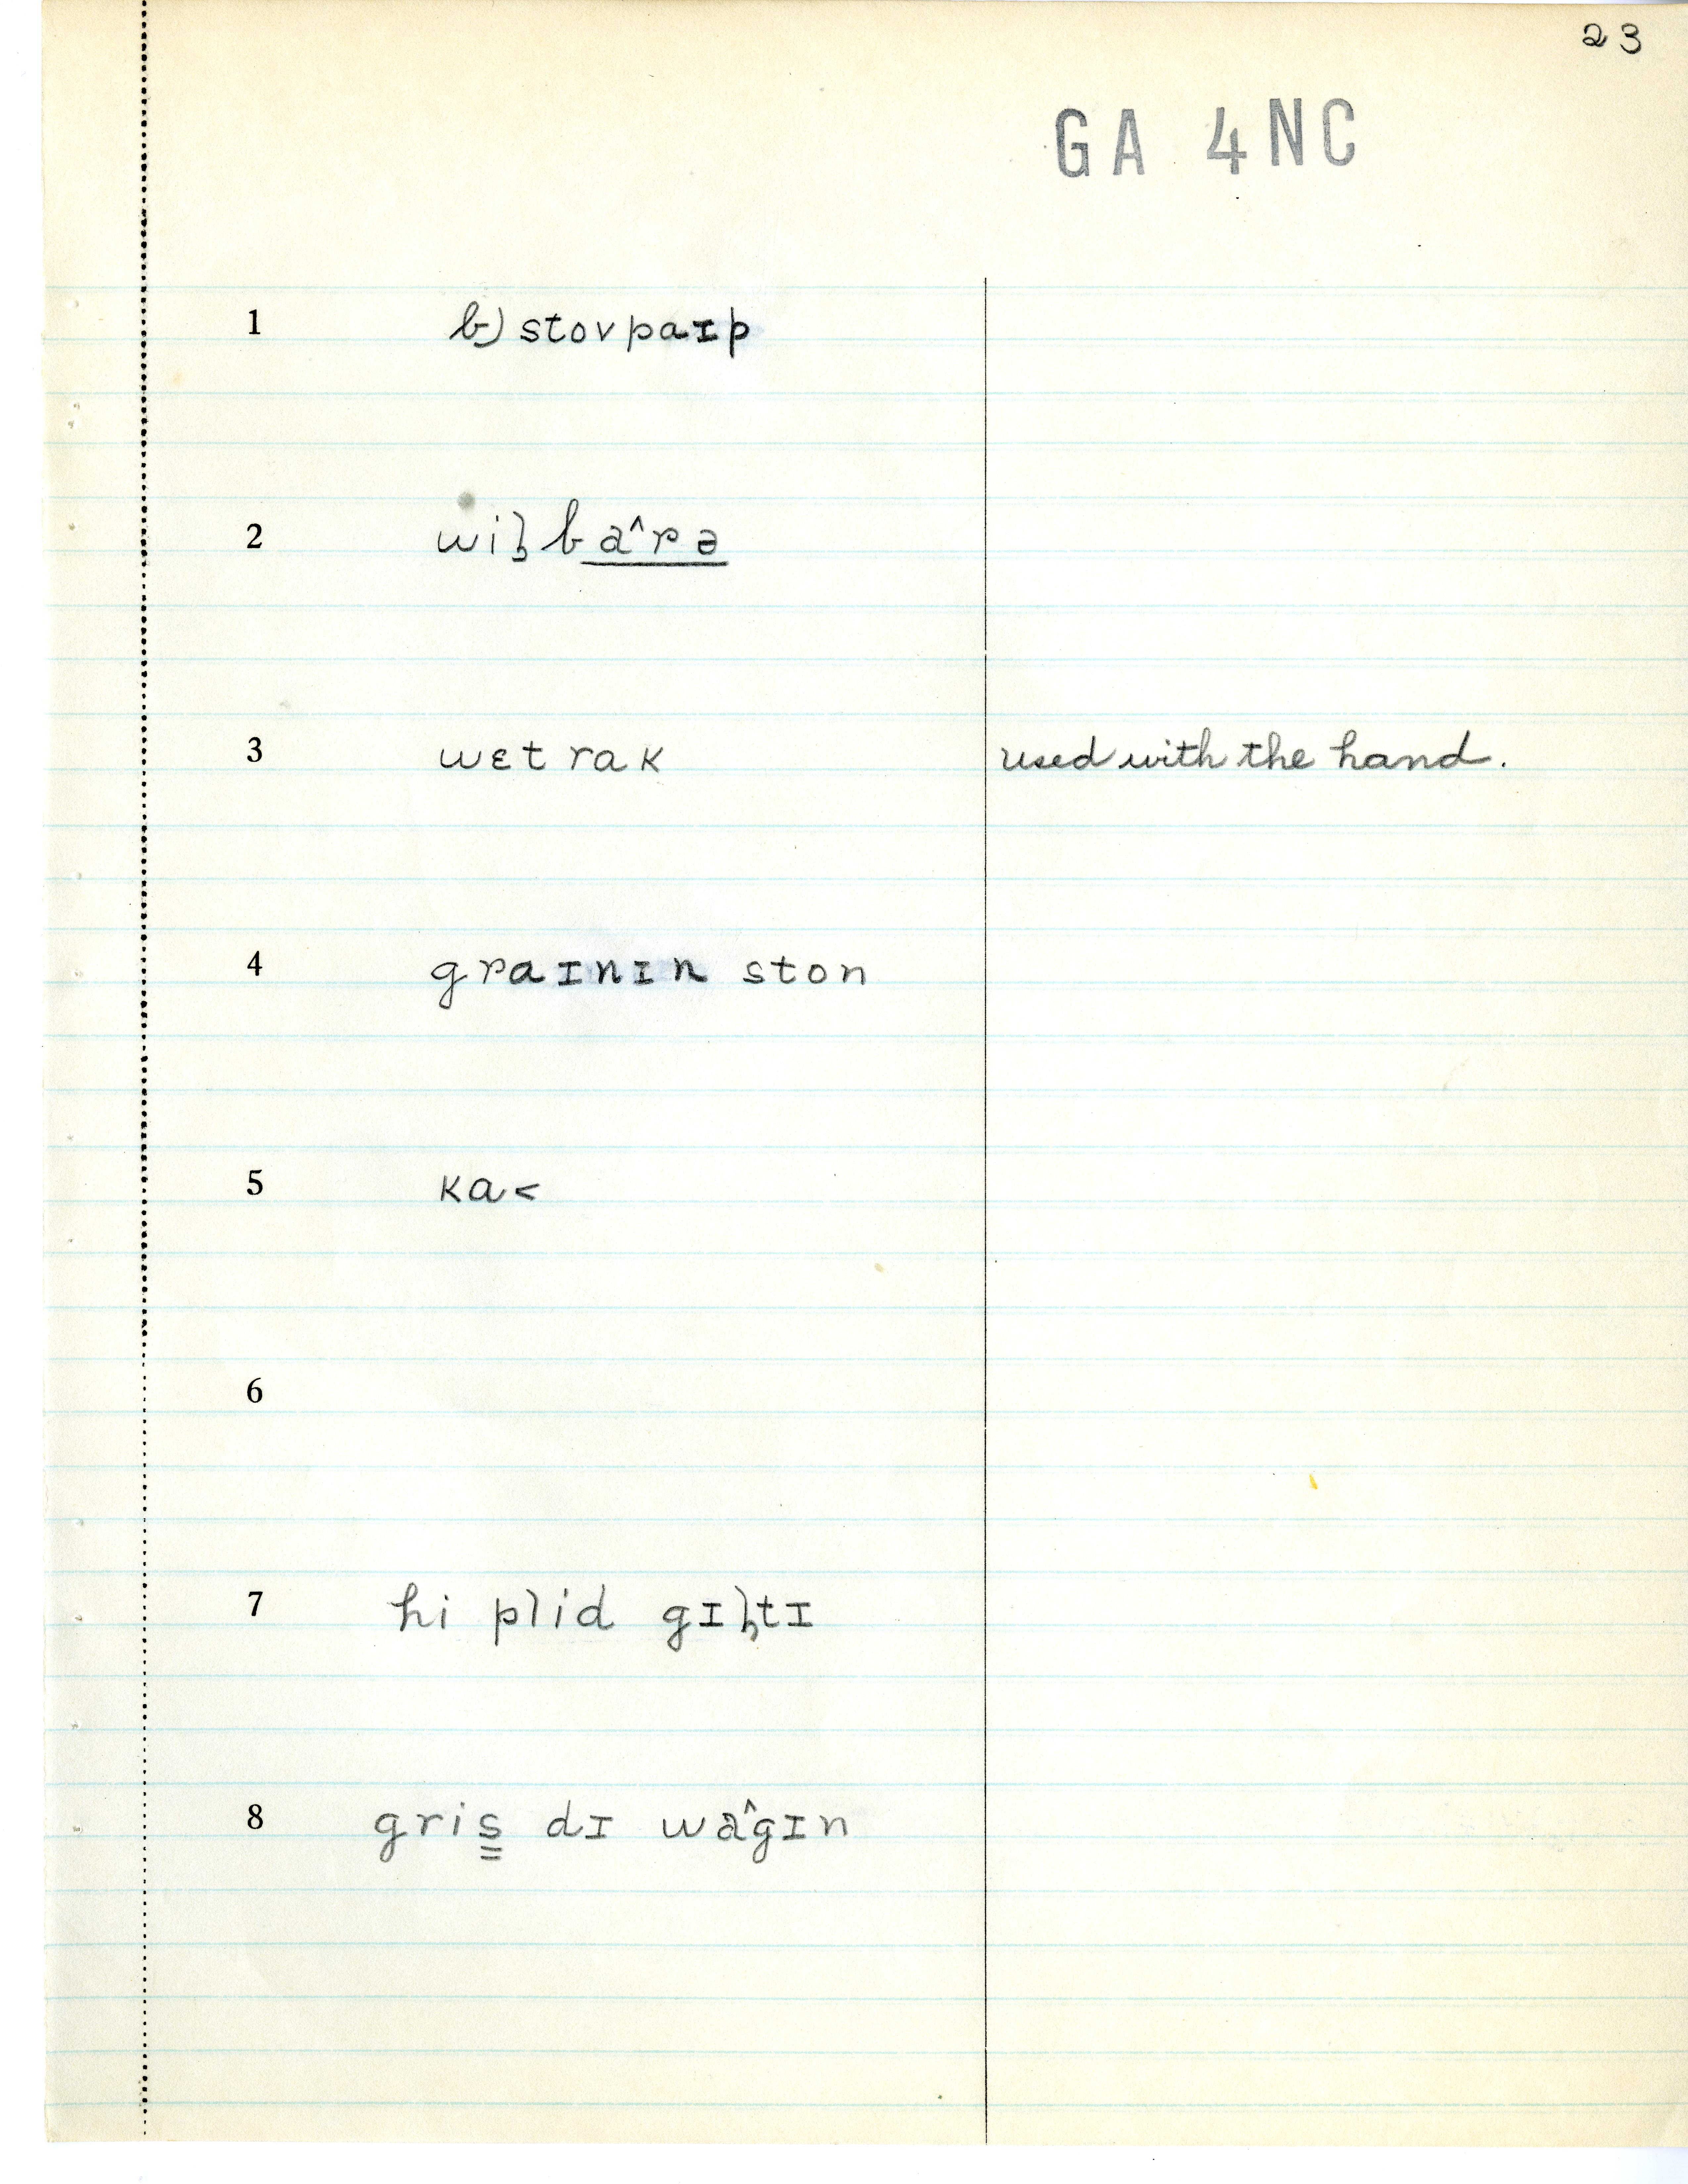 23
GA 4NC
1 b) stovpaɪp
2 wiɫba^rə
3 wɛt rak used with the hand.
4 graɪnɪn ston
5 ka<
6
7 hi plid gɪɫtɪ
8 gris̳ dɪ wa^gɪn